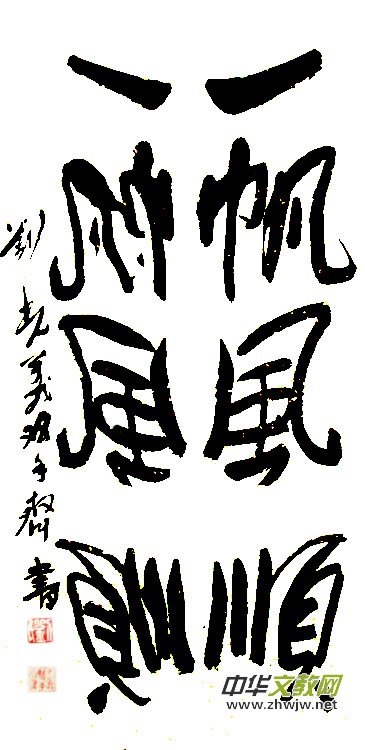 一帆風順
一帆風順
劉義双手齊書
中华文教网
www.zhwjw.net